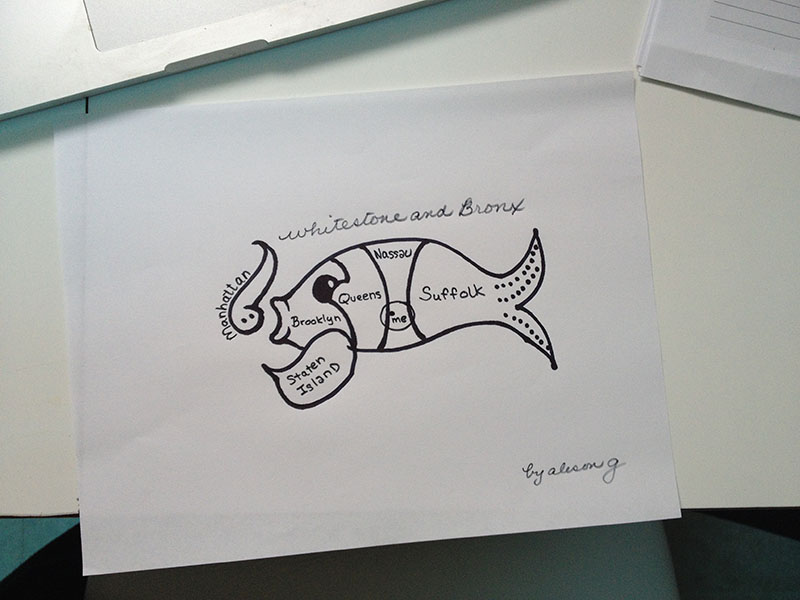 whitestone and Bronx
Manhattan
Nassau
Queens
Suffolk
Brooklyn
me
Staten
Island
by alison g